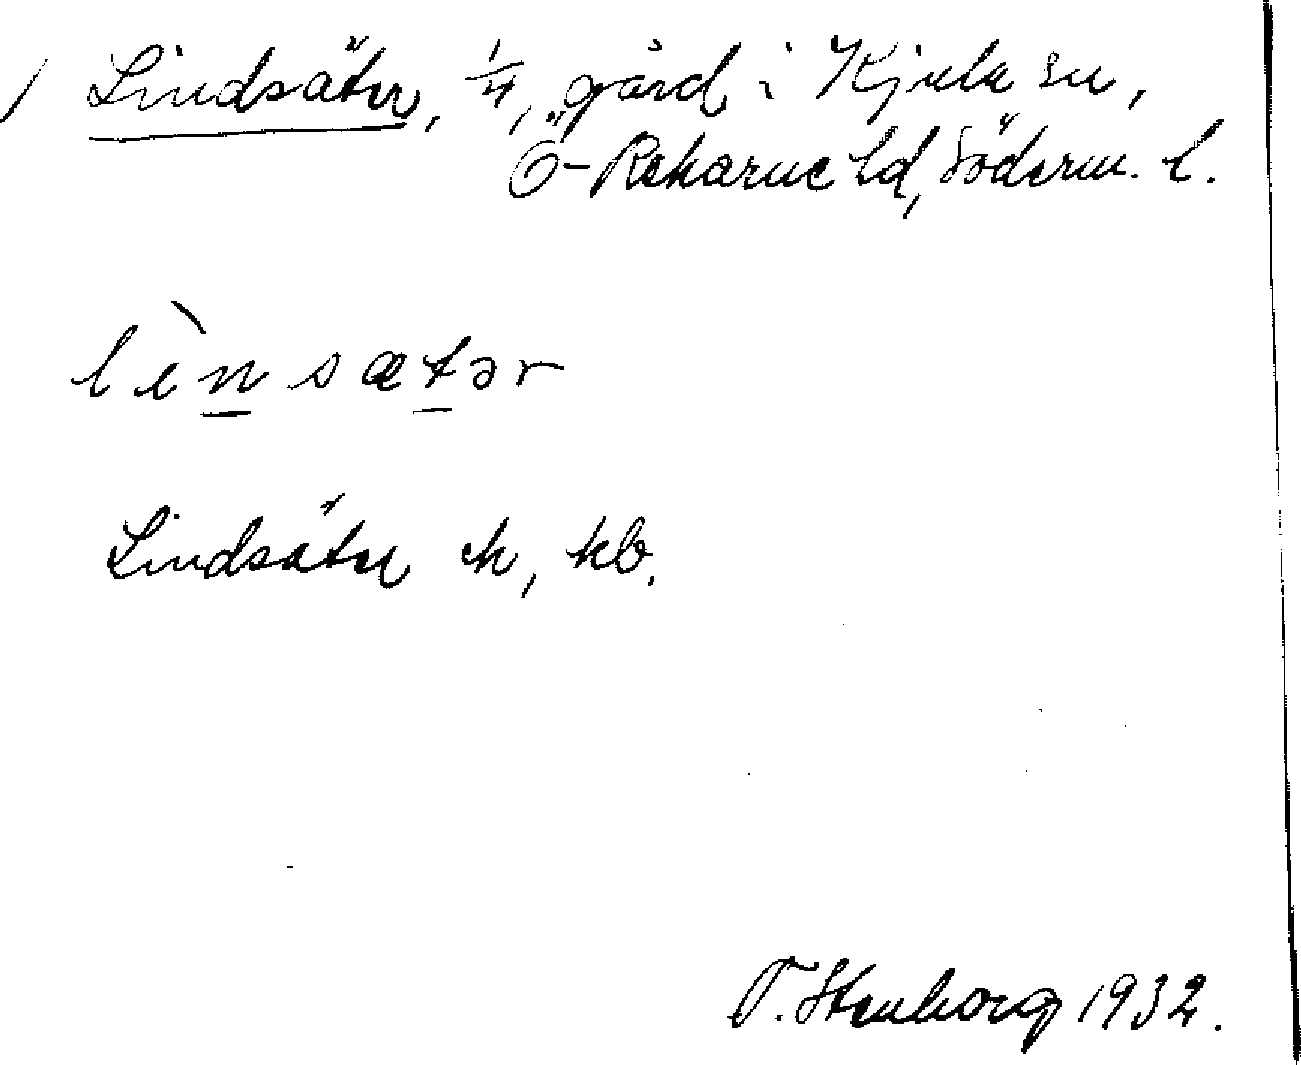 Lindsäter, 1/4, gård i Kjula sn,
Ö-Rekarne hd, Söderm. l.
lìnsætər
Lindsäter ek, kb.
T. Stenborg 1932.